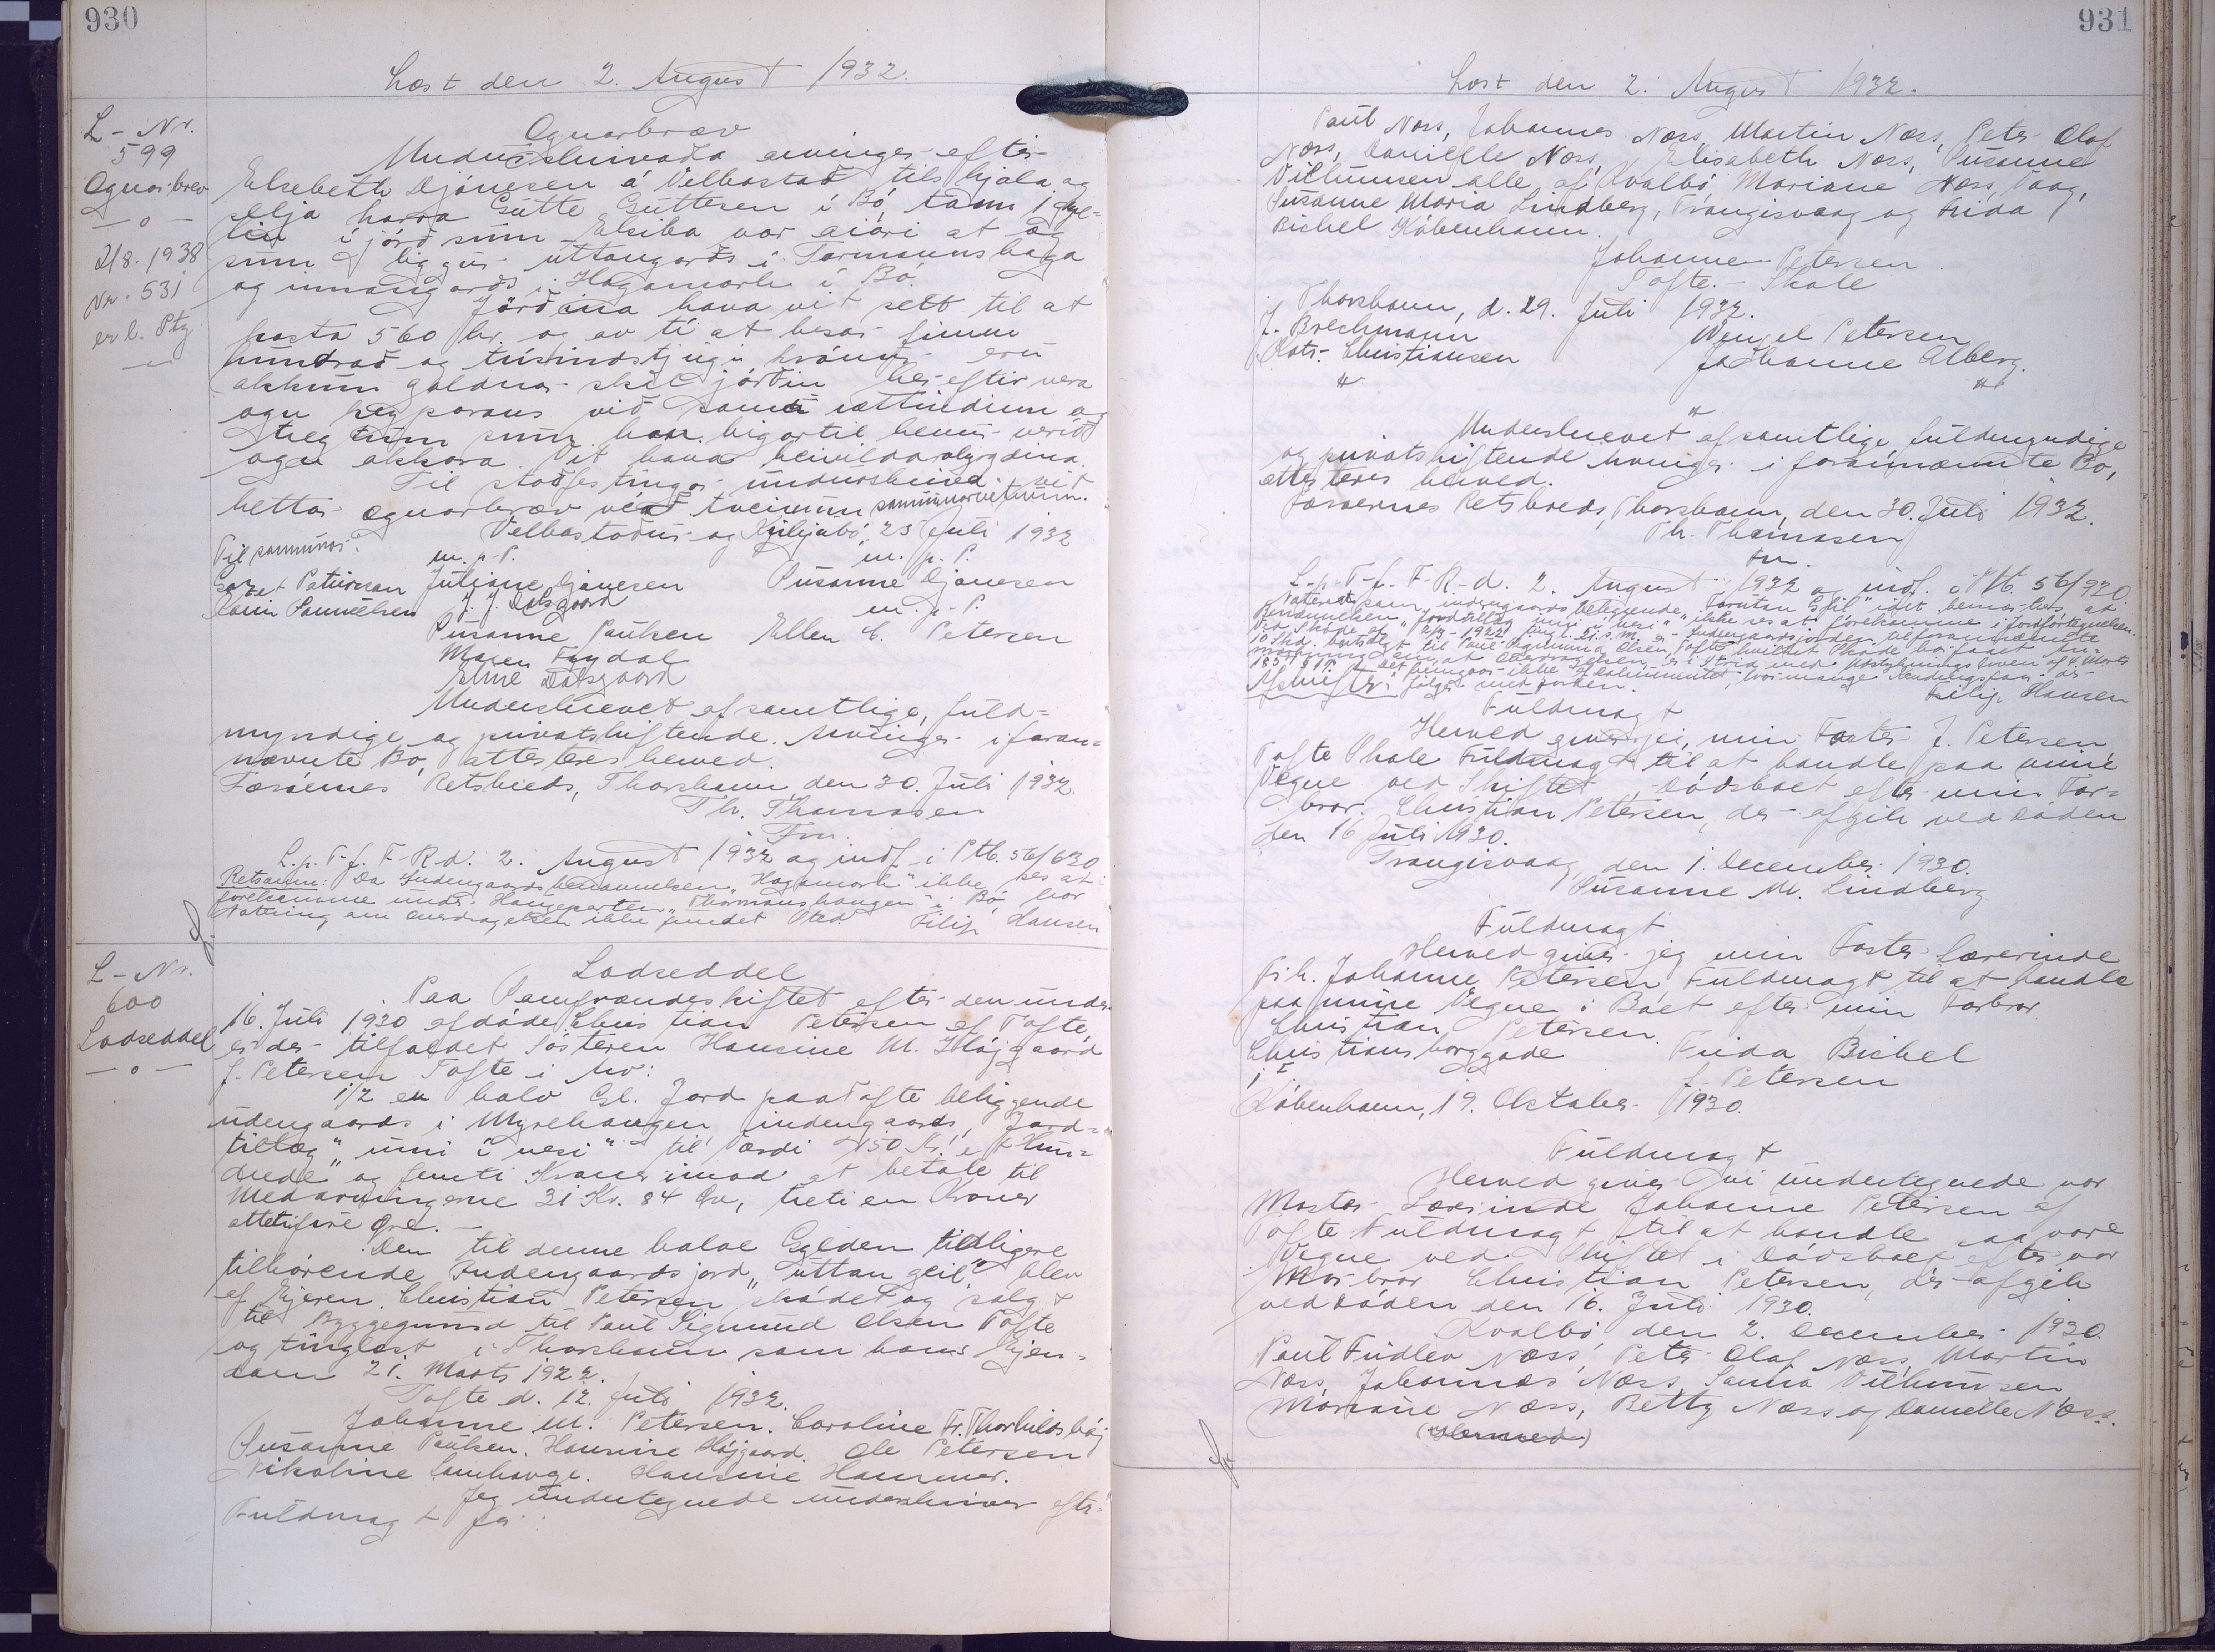 930
Læst den 2. August 1932.
L-Nr.
599
Ognarbrev
— o —
2/8. 1938
Nr. 531
erl. Ptg.
Ognarbræv
Undirskrivaða arvingar eftir
Elsebeth Djónesen á Velbastað tilskjøla og
selja harra Gutte Guttesen í Bø, tann 1 gyl-
lin í jørð sum Elsba var eiari at og
sum liggur uttangarðs í Tormannshaga
og innangarðs í Hagamork í Bø.
Jørðina hava vit selt til at
kosta 560 kr. og av tí at hesar fimm
hundrað og trísindstjúgu krónur eru
okkum goldnar skal jørðin hereftir vera
ogn keyparans við somu rættindum og
treytum sum hon higartil hevur verið
ogn okkara. Vit hava heimildarábyrgdina.
Til staðfestingar undirskriva vit
hettar ognarbræv við tveimum sannorvethum.
Velbastaður og Kirkjubø, 23 Juli 1932
Til sannurar.
m. p. P. m. p. P.
Gazet Patursson Juliane Djonesen Susanne Djonesen
Danin Samuelsen J. J. Dalsgaard m. p. P.
Susanne Paulsen Ellen C. Petersen
Maren Frydal
Elme Dalsgaard
Underskrevet af samtlige, fuld-
myndige og privatskiftende Arvinger i foran-
nævnte Bo, attesteres herved.
Færøernes Retskreds, Thorshavn, den 30. Juli 1932.
Th. Thomasen
Fm.
L. p. T. f. F. R. d. 2. August 1932 og indf. i Ptb. 56/630
Retsanm: Da Indengaardsbenævnelsen "Hagamork" ikke ses at
forekomme under Haugeparten "Thormanshaugen" i Bø, har
Notering om Overdragelsen ikke fundet Sted. Filip Hansen
L-Nr.
600
Lodseddel
— o —
Lodseddel
Paa Samfrændeskiftet efter den under
16. Juli 1930 afdøde Christian Petersen af Tofte,
er der tilfaldet Søsteren Hansine M. Højgaard
f. Petersen Tofte i Arv:
1/2 en halv Gl. Jord paa Tofte beliggende
udengaards i Myrehaugen, indengaards "Jord-
tillæg" "inni í nesi" til Værdi 150 Kr. "et Hun-
drede" og femti Kroner imod at betale til
Medarvingerne 31 Kr. 84 Øre, tretien Kroner
ottetifire Øre. —
Den til denne halve Gylden tidligere
tilhørende Indengaardsjord "uttan geil" blev
af Ejeren Christian Petersen skødet og solgt
til Byggegrund til Paul Sigmund Olsen Tofte
og tinglæst i Thorshavn som hans Ejen-
dom 21. Marts 1922.
Tofte d. 12. Juli 1932.
Johanne M. Petersen. Caroline Fr. Thorkildshøj
Susanne Paulsen. Hansine Højgaard. Ole Petersen
Nikoline Lamhauge. Hansine Hammer.
Jeg undertegnede underskriver efter
Fuldmagt for:
931
Læst den 2. August 1932.
Paul Næss, Johannes Næss, Martin Næss, Peter Olaf
Næss, Danielle Næss, Elisabeth Næss, Susanne
Vilhumsen alle af Kvalbø, Mariane Næss, Vaag,
Susanne Maria Lindberg, Trangisvaag og Frida
Bichel København.
Johanne Petersen
Tofte-Skole
Thorshavn, d. 29. Juli 1932.
J. Brechmann Wengel Petersen
Kats. Christiansen Johanne Alberg.
Underskrevet af samtlige fuldmyndige
og privatskiftende Arvinger i forannævnte Bo,
attesteres herved.
Færøernes Retskreds, Thorshavn, den 30. Juli 1932.
Th. Thomasen
Fm.
L. p. T. f. F. R. d. 2. August 1932 og indf. i Ptb. 56/920
indengaards beliggende
Filip Hansen
Fuldmagt
Herved giver jeg, min Faster J. Petersen
Tofte Skole Fuldmagt til at handle paa mine
Vegne ved Skiftet i Dødsboet efter min Far-
bror Christian Petersen, der afgik ved Døden
den 16 Juli 1930.
Trangisvaag, den 1. December 1930.
Susanne M. Lindberg
Fuldmagt
Herved giver jeg min Faster Lærerinde
Frk. Johanne Petersen Fuldmagt til at handle
paa mine Vegne i Boet efter min Farbror
Christian Petersen.
Christiansborggade Frida Bichel
1 I f. Petersen
København, 19. Oktober 1930.
Fuldmagt
Herved giver vi undertegnede vor
Moster Lærerinde Johanne Petersen af
Tofte Fuldmagt til at handle paa vore
Vegne ved Skiftet i Dødsboet efter vor
Morbror Christian Petersen, der afgik
ved Døden den 16. Juli 1930.
Kvalbø den 2. December 1930.
Paul Fridlev Næss, Peter Olaf Næss, Martin
Næss, Johannes Næss, Sanna Vilhumsen
Mariane Næss, Betty Næss og Danielle Næss.